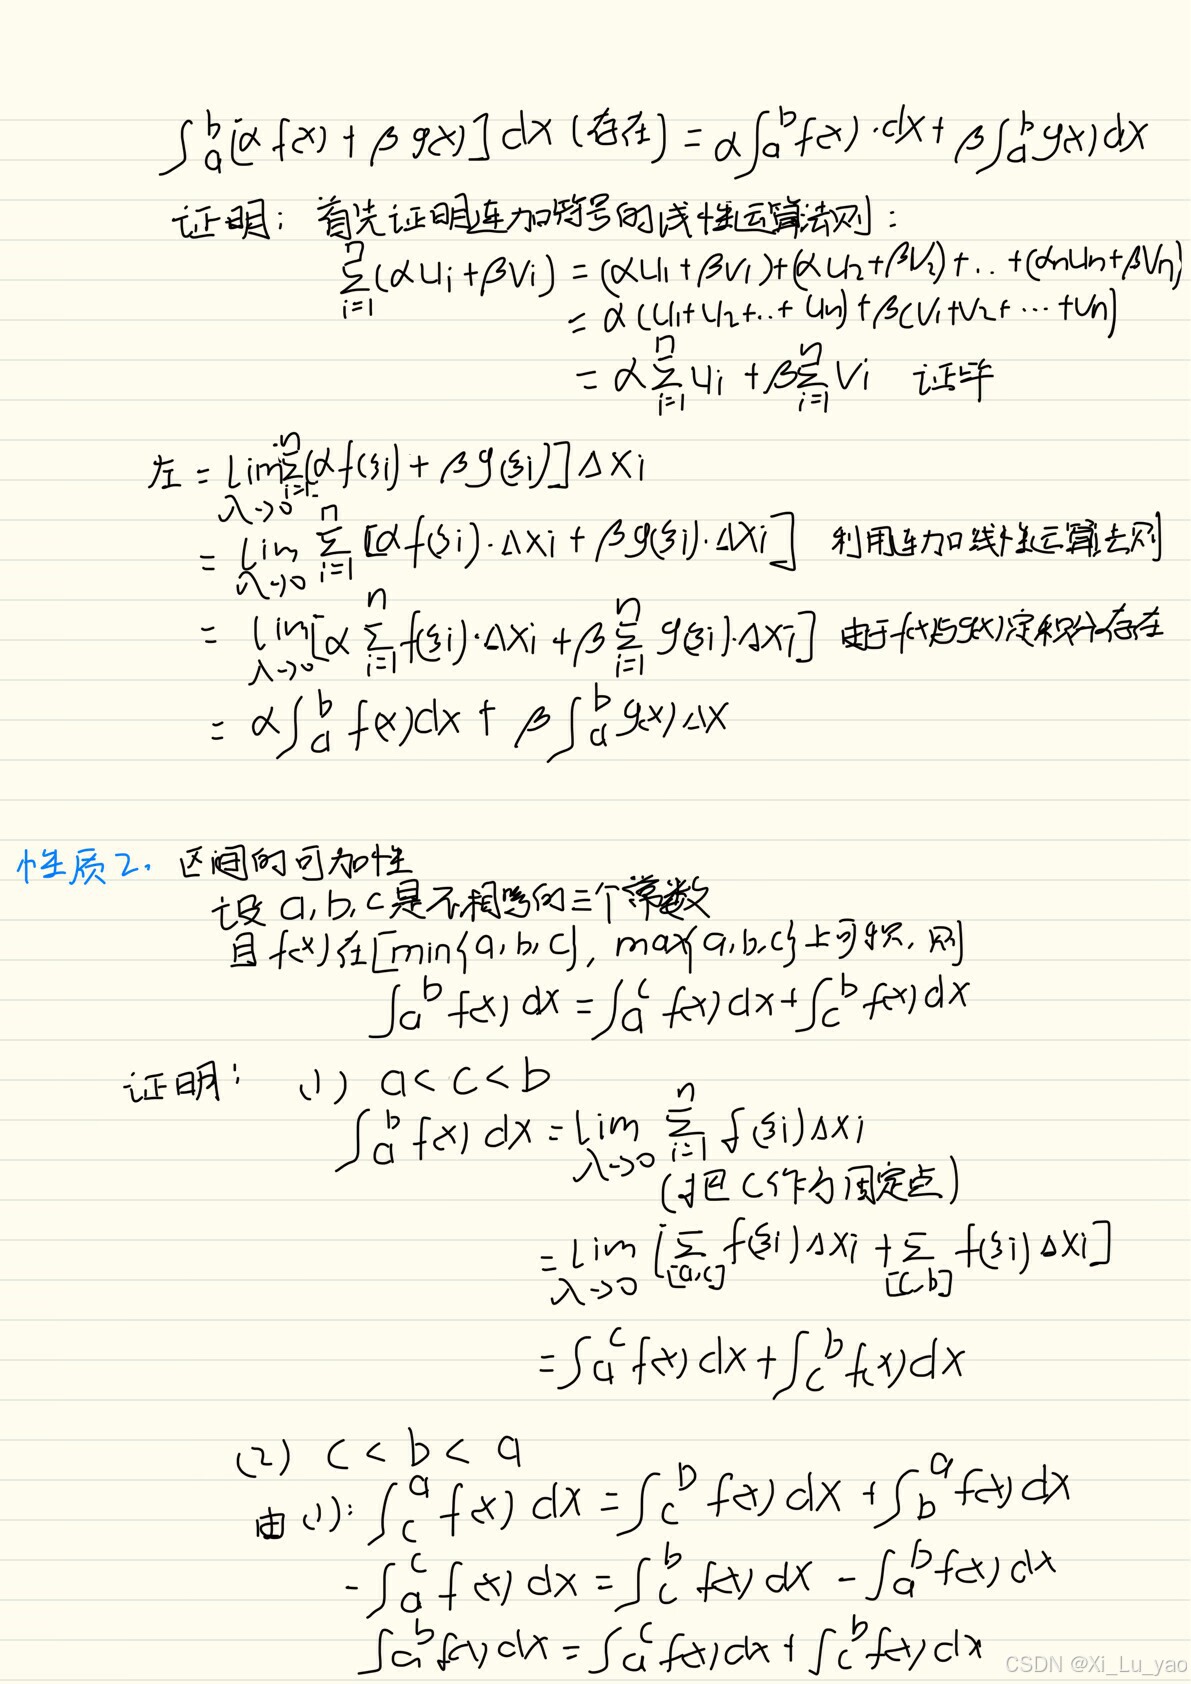 ∫_a^b [αf(x) + βg(x)] dx (存在) = α∫_a^b f(x)·dx + β∫_a^b g(x)dx
证明: 首先证明连加符号的线性运算法则:
∑_{i=1}^n (αu_i + βv_i) = (αu_1 + βv_1) + (αu_2 + βv_2) + .. + (α_n u_n + βv_n)
= α(u_1 + u_2 + .. + u_n) + β(v_1 + v_2 + ··· + v_n]
= α∑_{i=1}^n u_i + β∑_{i=1}^n v_i 证毕
左 = lim_{λ→0} ∑_{i=1}^n [αf(ξ_i) + βg(ξ_i)] Δx_i
= lim_{λ→0} ∑_{i=1}^n [αf(ξ_i)·Δx_i + βg(ξ_i)·Δx_i] 利用连加线性运算法则
= lim_{λ→0} [α∑_{i=1}^n f(ξ_i)·Δx_i + β∑_{i=1}^n g(ξ_i)·Δx_i] 由于f(x)与g(x)定积分存在
= α∫_a^b f(x)dx + β∫_a^b g(x)Δx
性质2. 区间的可加性
设a,b,c是不相等的三个常数
且f(x)在[min{a,b,c}, max{a,b,c}上可积, 则
∫_a^b f(x) dx = ∫_a^c f(x) dx + ∫_c^b f(x) dx
证明: (1) a < c < b
∫_a^b f(x) dx = lim_{λ→0} ∑_{i=1}^n f(ξ_i) Δx_i
(把C作为固定点)
= lim_{λ→0} [∑_{[a,c]} f(ξ_i) Δx_i + ∑_{[c,b]} f(ξ_i) Δx_i]
= ∫_a^c f(x) dx + ∫_c^b f(x) dx
(2) c < b < a
由(1): ∫_c^a f(x) dx = ∫_c^b f(x) dx + ∫_b^a f(x) dx
-∫_a^c f(x) dx = ∫_c^b f(x) dx - ∫_a^b f(x) dx
∫_a^b f(x) dx = ∫_a^c f(x) dx + ∫_c^b f(x) dx
CSDN @Xi_Lu_yao